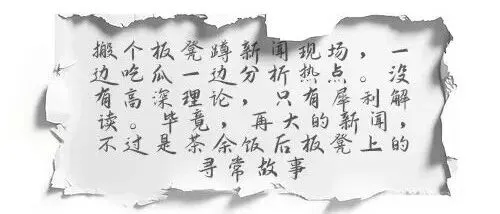 搬个板凳蹲新闻现场，一
边吃瓜一边分析热点。没
有高深理论，只有犀利解
读。毕竟，再大的新闻，
不过是茶余饭后板凳上的
寻常故事